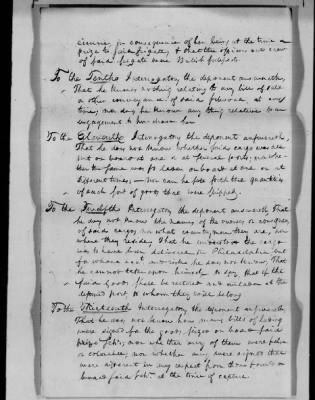 seizure, in consequence of her being at the time a
prize to said frigate, & that the officers and crew
of said frigate were British subjects.
To the Tenth Interrogatory the deponent answereth,
That he knows nothing relating to any bills of sale
or other conveyance of said schooner, at any
time, nor does he know any thing relative to an
engagement to purchase her
To the Eleventh Interrogatory the deponent answereth,
That he does not know whether said cargo was all
put on board at one or at several ports, or whe-
ther the same was so laden on board at one or at
different times, nor can he set forth the quantity
of each sort of goods that were shipped.
To the Twelfth Interrogatory the deponent answereth That
he does not know the names of the owners or consignees
of said cargo, nor what countrymen they are, nor
where they reside, that he understood the cargo
was to have been delivered in Philadelphia but
for whose acct. or risk he does not know, That
he cannot take upon himself to say that if the
said goods shall be restored and unladen at the
destined port to whom they will belong
To the Thirteenth Interrogatory the deponent answereth
That he does not know how many bills of lading
were signed for the goods seized on board said
prize sch., nor whether any of them were false
or colourable, nor whether any were signed that
were different in any respect from those found on
board said sch. at the time of capture.